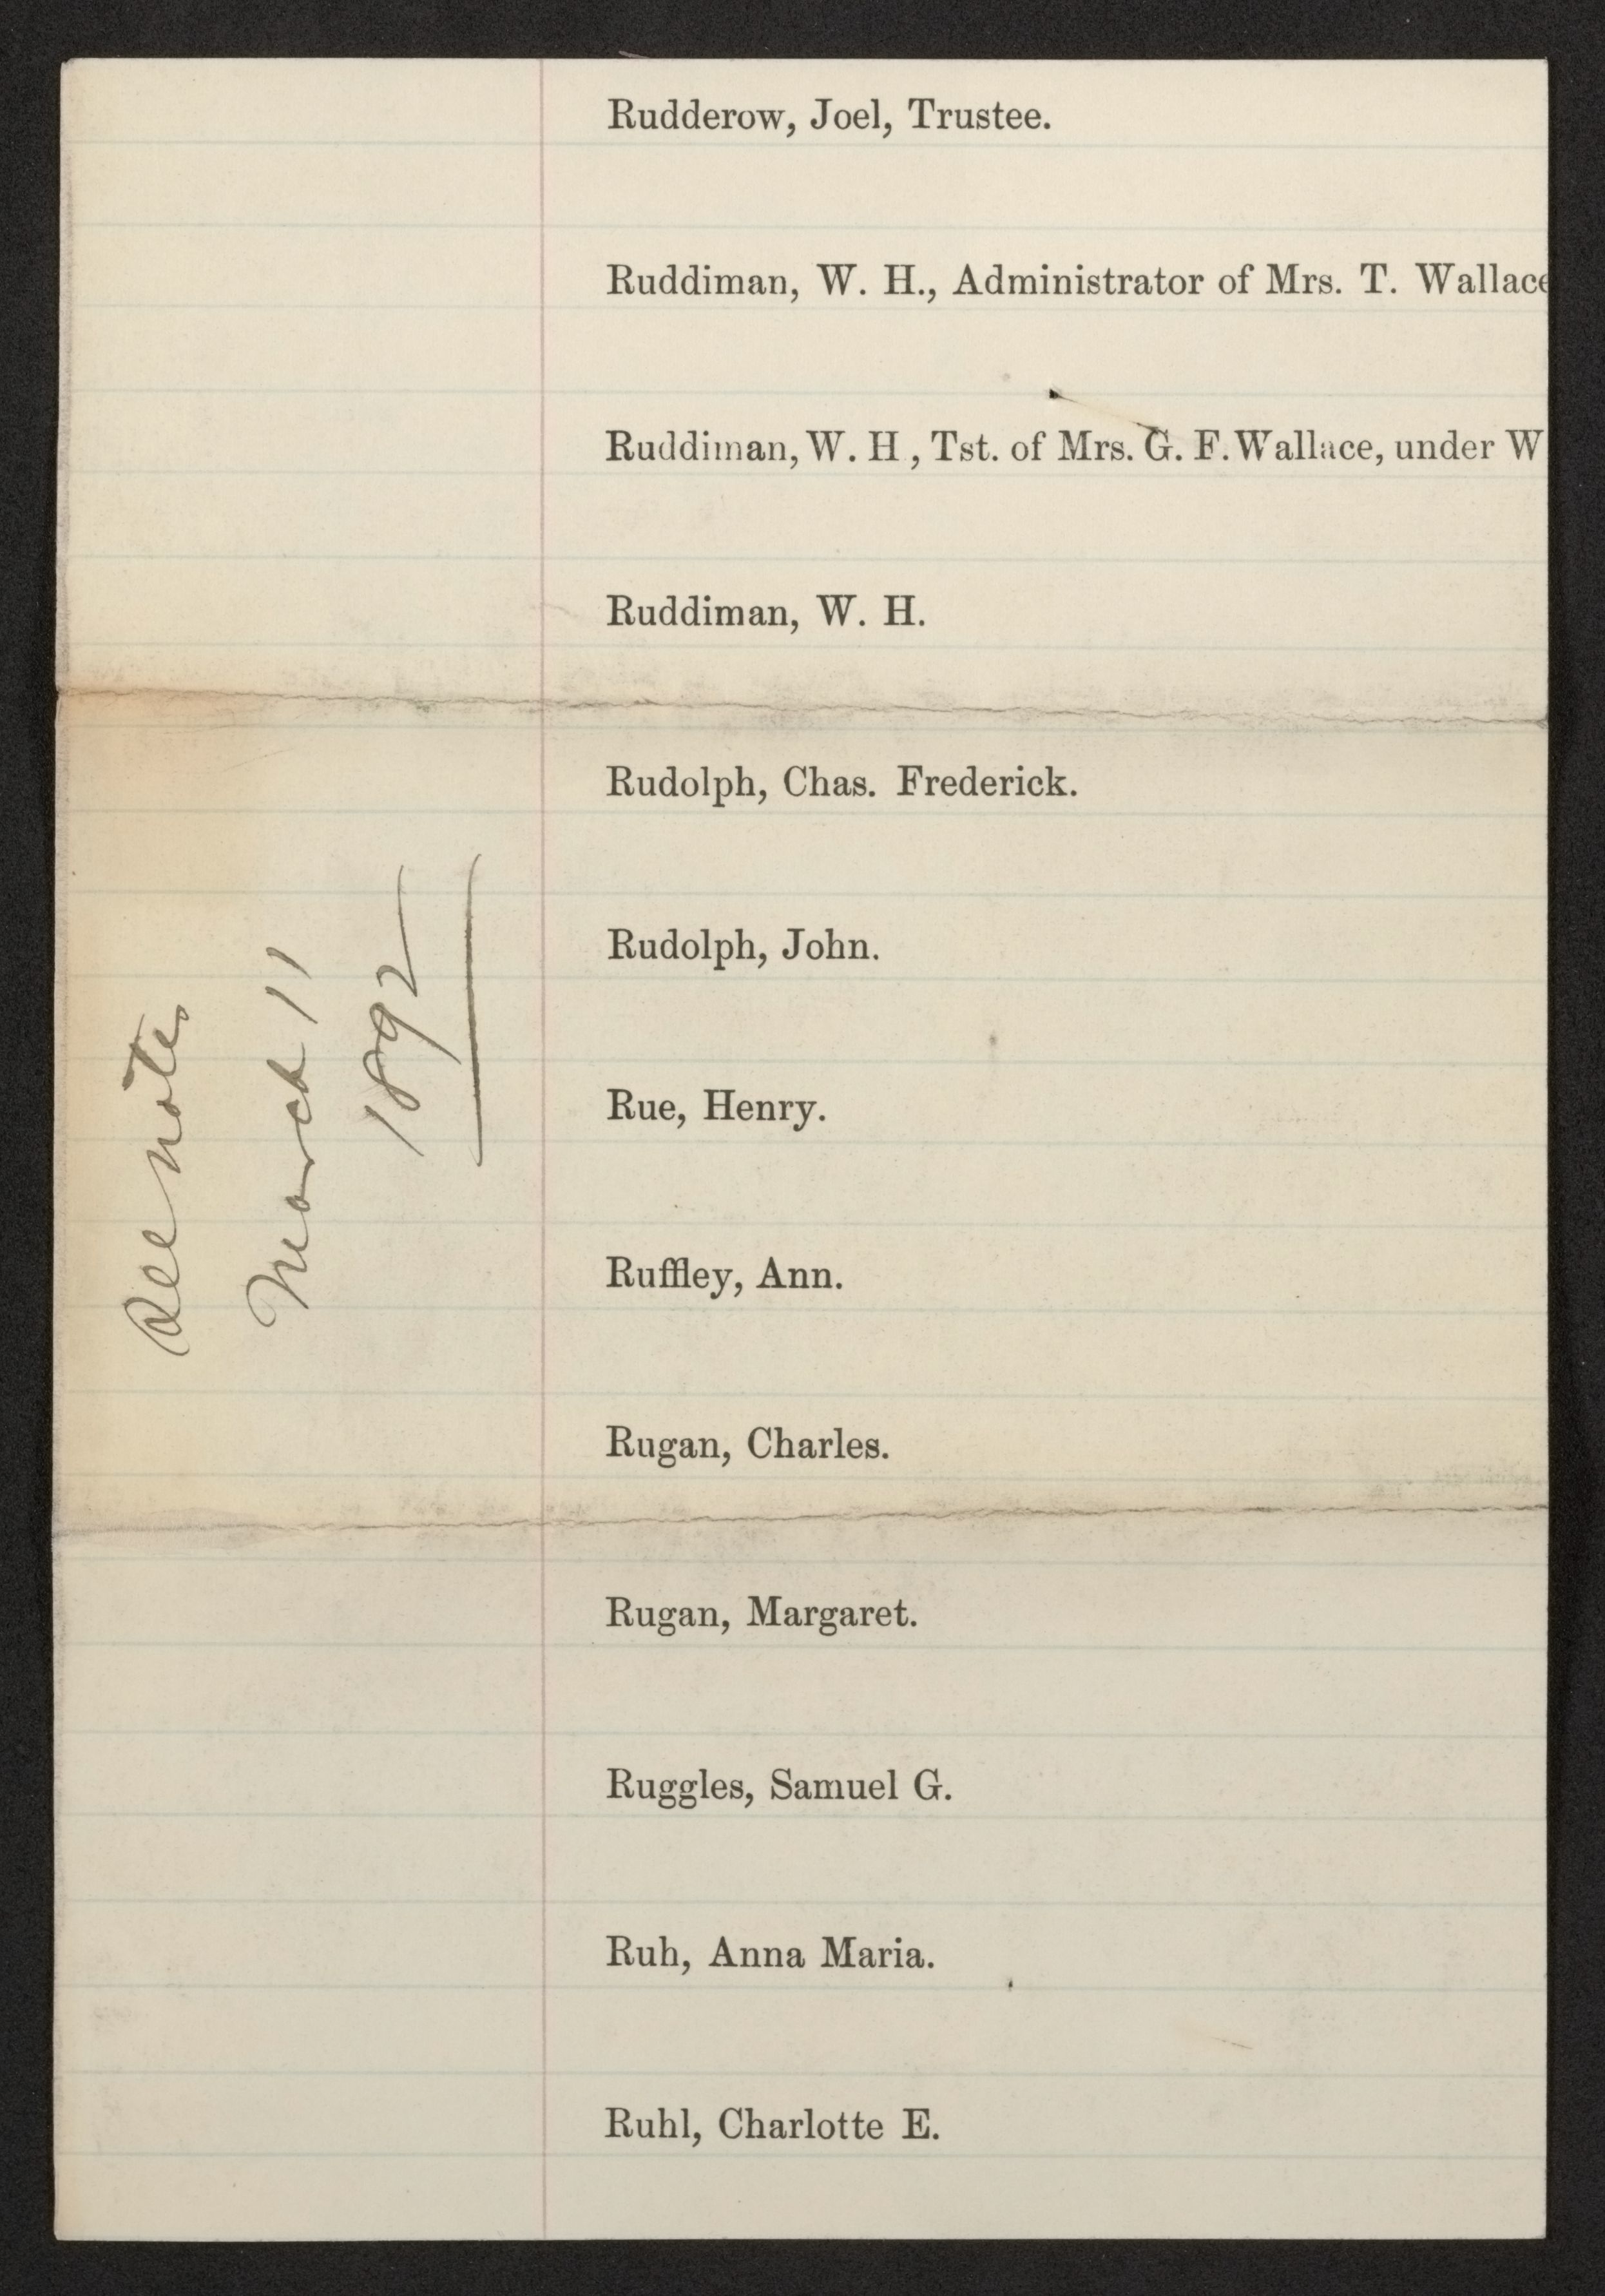 Rudderow, Joel, Trustee.
Ruddiman, W. H., Administrator of Mrs. T. Wallace
Ruddiman, W. H , Tst. of Mrs. G. F. Wallace, under W
Ruddiman, W. H.
Rudolph, Chas. Frederick.
Rudolph, John.
Rue, Henry.
Ruffley, Ann.
Rugan, Charles.
Rugan, Margaret.
Ruggles, Samuel G.
Ruh, Anna Maria.
Ruhl, Charlotte E.
See notes
March 11
1892